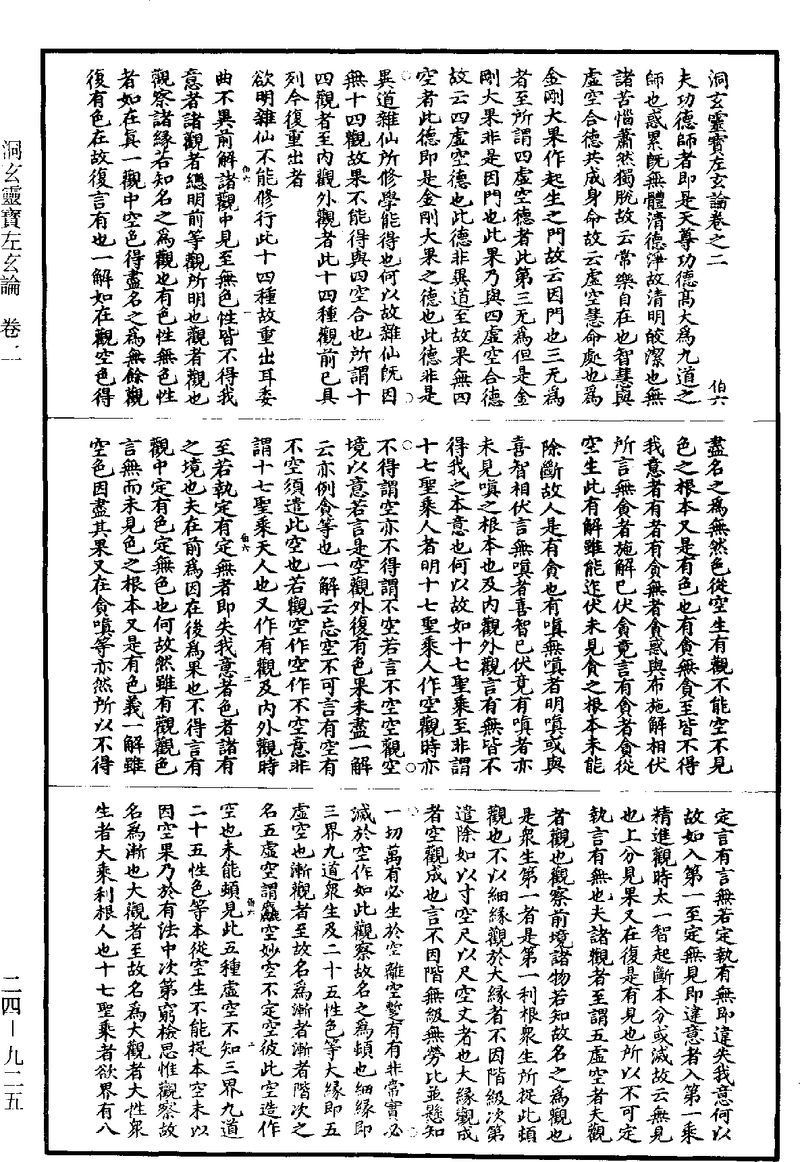 洞玄靈寶左玄論卷之二　伯六
夫功德師者即是天尊功德髙大為九道之
師也惑累既無體清德淨故清明皎潔也無
諸苦惱蕭然獨脫故云常樂自在也智慧與
虛空合德共成身命故云虛空慧命處也為
金剛大果作起生之門故云因門也三无為
者至所謂四虛空德者此第三无為但是金
剛大果非是因門也此果乃與四虛空合德
故云四虛空德也此德非異道至故果無四
空者此德即是金剛大果之德也此德非是
異道雜仙所修學能得也何以故雜仙既因
無十四觀故果不能得與四空合也所謂十
四觀者至內觀外觀者此十四種觀前已具
列今復重出者
欲明雜仙不能修行此十四種故重出耳委
曲不異前解諸觀中見至無色性皆不得我
意者諸觀者總明前等觀所明也觀者觀也
觀察諸緣若知名之為觀也有色性無色性
者如在真一觀中空色得盡名之為無餘觀
復有色在故復言有也一解如在觀空色得
盡名之為無然色從空生有觀不能空不見
色之根本又是有色也有貪無貪至皆不得
我意者有者有貪無者貪惑與布施解相伏
所言無貪者施解已伏貪竟言有貪者貪從
空生此有解雖能迮伏未見貪之根本未能
除斷故人是有貪也有嗔無嗔者明嗔或與
喜智相伏言無嗔者喜智已伏竟有嗔者亦
未見嗔之根本也及內觀外觀言有無皆不
得我之本意也何以故如十七聖乘至非謂
十七聖乘人者明十七聖乘人作空觀時亦
不得謂空亦不得謂不空若言不空空觀空
境以意若言是空觀外復有色果未盡一解
云亦例貪等也一解云忘空不可言有空有
不空須遣此空也若觀空作空作不空意非
謂十七聖乘天人也又作有觀及內外觀時
至若執定有定無者即失我意者色者諸有
之境也夫在前為因在後為果也不得言有
觀中定有色定無色也何故然雖有觀觀色
言無而未見色之根本又是有色義一解雖
空色因盡其果又在貪嗔等亦然所以不得
定言有言無若定執有無即違失我意何以
故如入第一至定無見即違意者入第一乘
精進觀時太一智起斷本分或滅故云無見
也上分見果又在復是有見也所以不可定
執言有無也夫諸觀者至謂五虛空者夫觀
者觀也觀察前境諸物若知故名之為觀也
是衆生第一者是第一利根衆生所捉此頓
觀也不以細緣觀於大緣者不因階級次第
遣除如以寸空尺以尺空丈者也大緣觀成
者空觀成也言不因階無級無勞比並懸知
一切萬有必生於空離空蹔有有非常實必
滅於空作如此觀察故名之為頓也細緣即
三界九道衆生及二十五性色等大緣即五
虛空也漸觀者至故名為漸者漸者階次之
名五虛空謂麤空妙空不定空彼此空造作
空也未能頓見此五種虛空不知三界九道
二十五性色等本從空生不能捉本空末以
因空果乃於有法中次第窮檢思惟觀察故
名為漸也大觀者至故名為大觀者大性衆
生者大乘利根人也十七聖乘者欲界有八
洞玄靈寶左玄論　卷二
二四－九二五